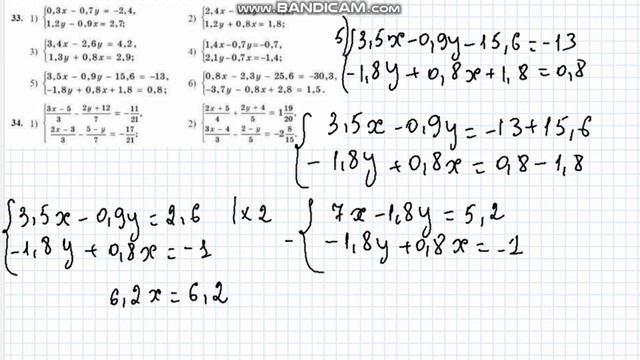 WWW.BANDICAM.COM
33. 1) {0,3x − 0,7y = −2,4,
1,2y − 0,9x = 2,7;
2) {2,4x −
1,2y + 0,8x = 1,8;
3) {3,4x − 2,6y = 4,2,
1,3y + 0,8x = 2,9;
4) {1,4x−0,7y=−0,7,
2,1y−0,7x=−1,4;
5) {3,5x − 0,9y − 15,6 = −13,
−1,8y + 0,8x + 1,8 = 0,8;
6) {0,8x − 2,3y − 25,6 = −30,3,
−3,7y − 0,8x + 2,8 = 1,5.
34. 1) {(3x − 5)/3 − (2y + 12)/7 = −11/21,
(2x − 3)/3 − (5 − y)/7 = −17/21;
2) {(2x + 5)/4 + (2y + 4)/5 = 1 19/20,
(3x − 4)/3 − (2 − y)/5 = −2 8/15.
5) {3,5x − 0,9y − 15,6 = −13
−1,8y + 0,8x + 1,8 = 0,8
{3,5x − 0,9y = −13 + 15,6
−1,8y + 0,8x = 0,8 − 1,8
{3,5x − 0,9y = 2,6 | × 2
−1,8y + 0,8x = −1
− {7x − 1,8y = 5,2
−1,8y + 0,8x = −1
6,2x = 6,2